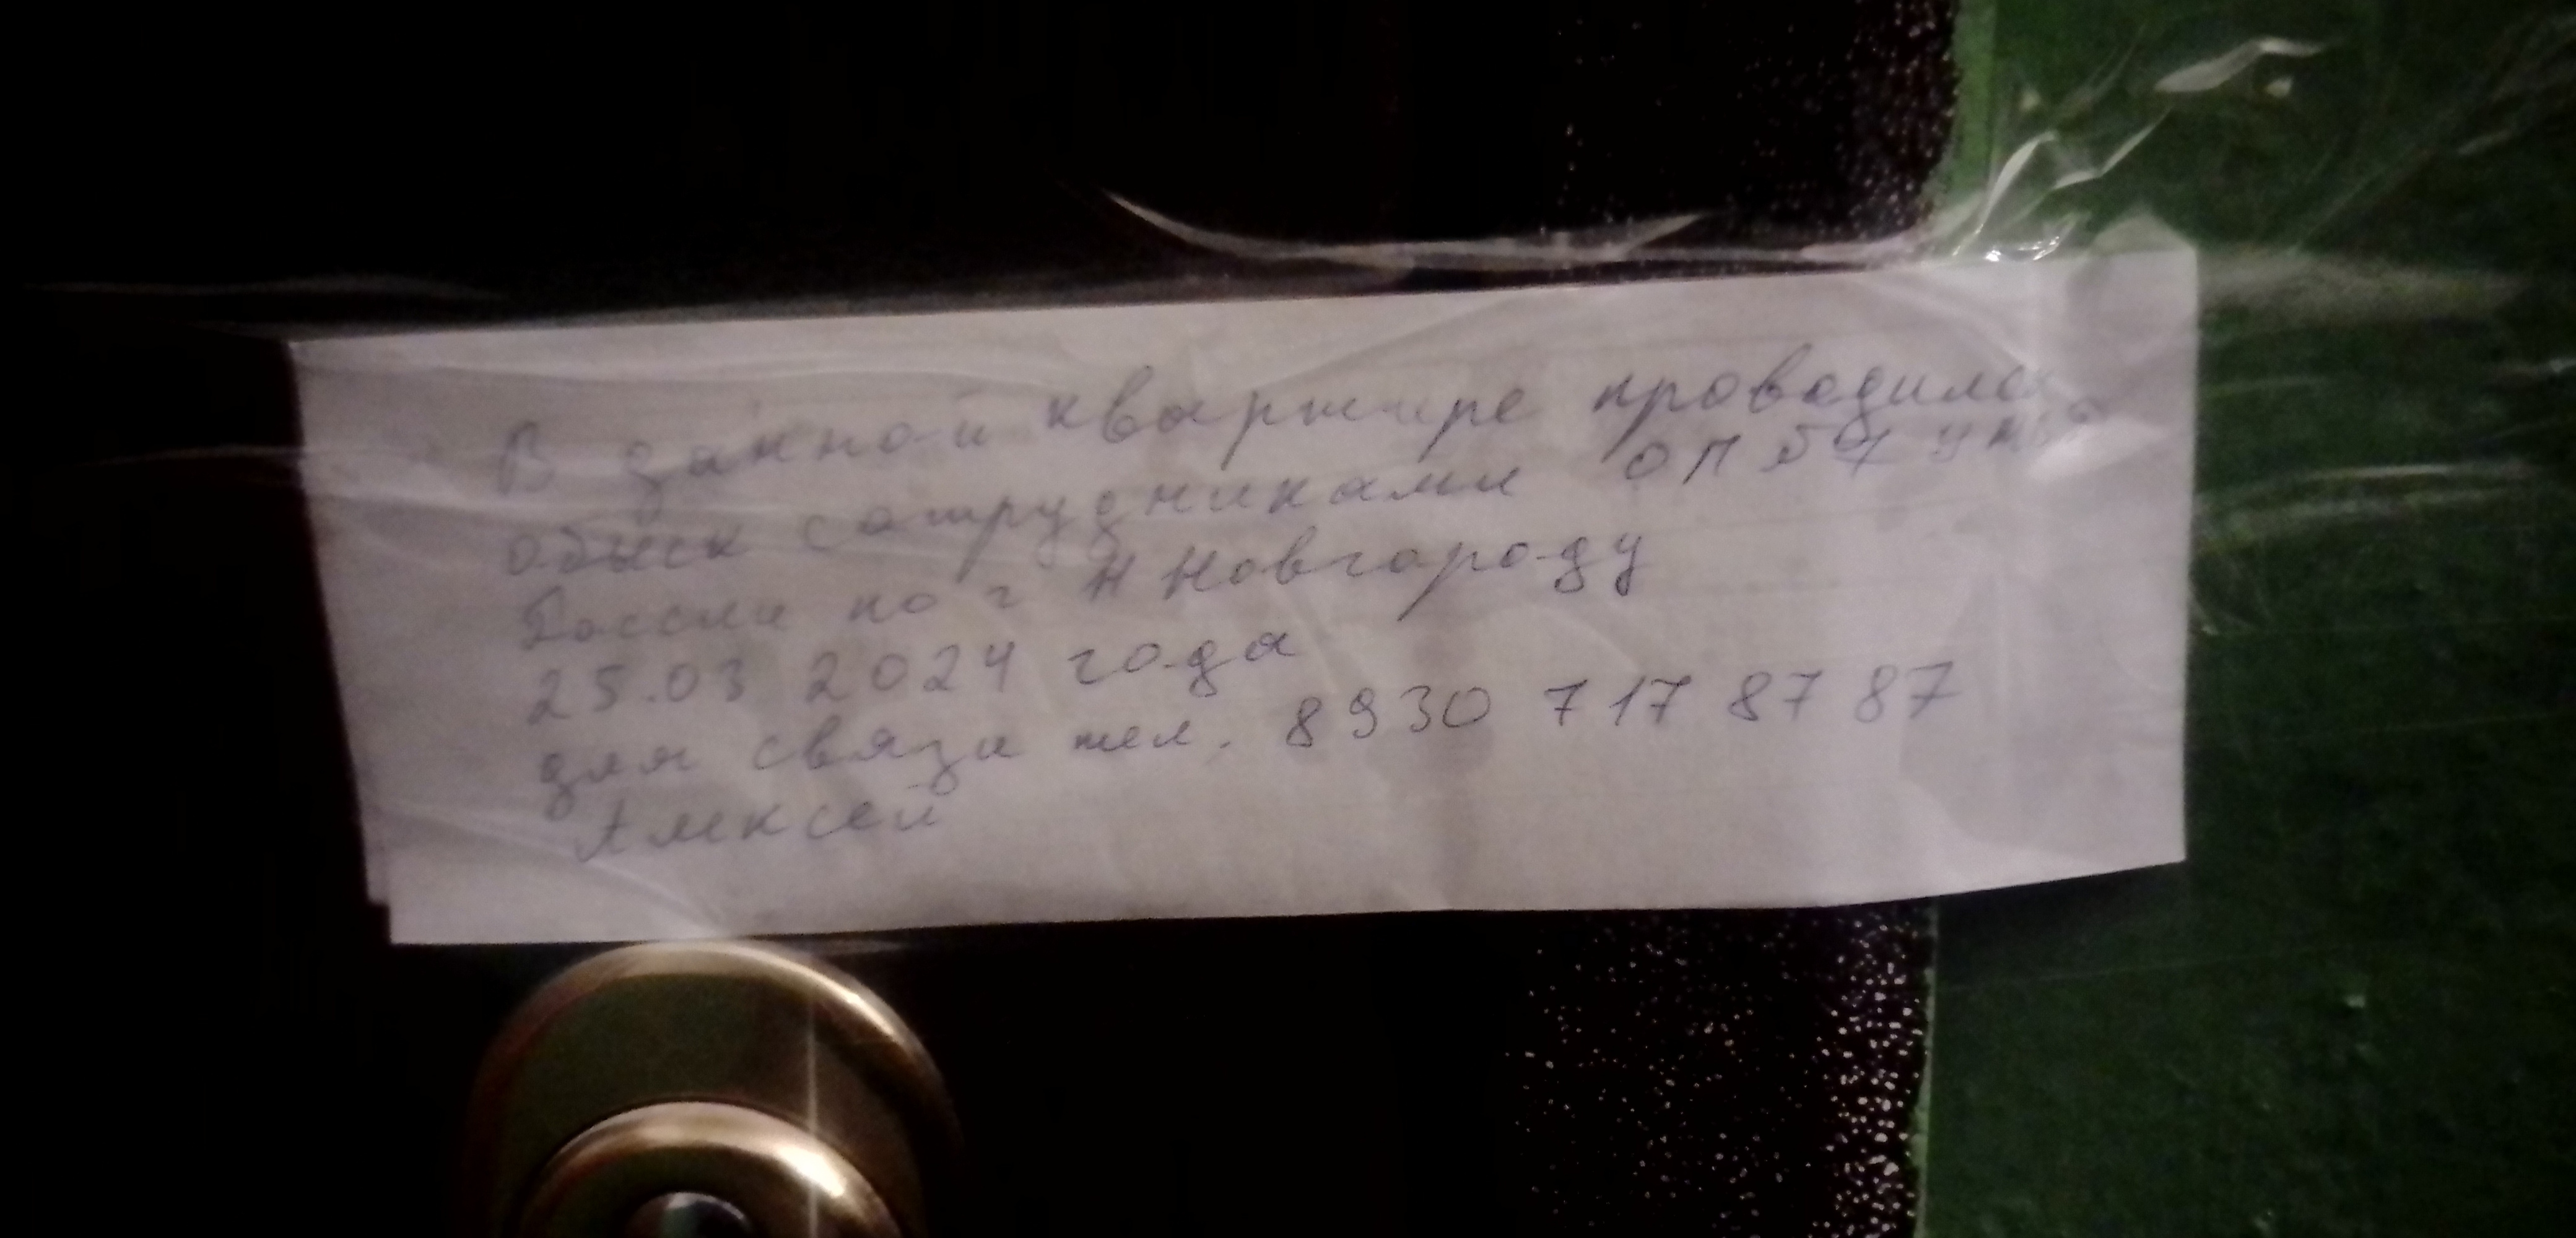 В данной квартире проводился
обыск сотрудниками ОП №7 УМВД
России по г Н Новгороду
25.03 2024 года
для связи тел. 8930 717 87 87
Алексей